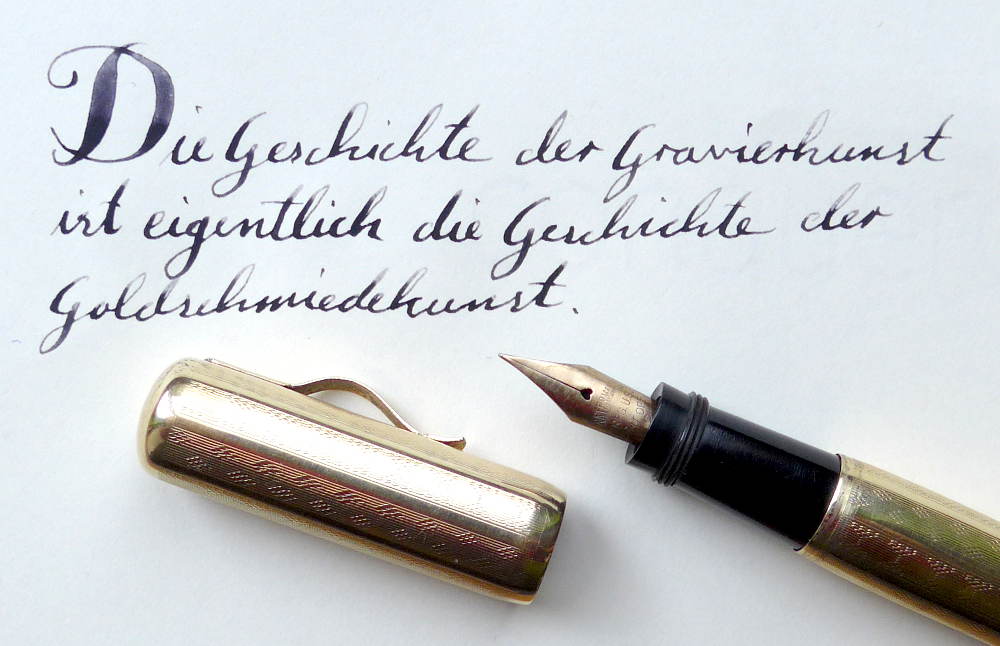 Die Geschichte der Gravierkunst
ist eigentlich die Geschichte der
Goldschmiedekunst.